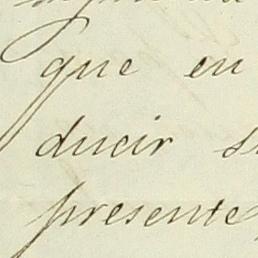 que en
ducir
presente